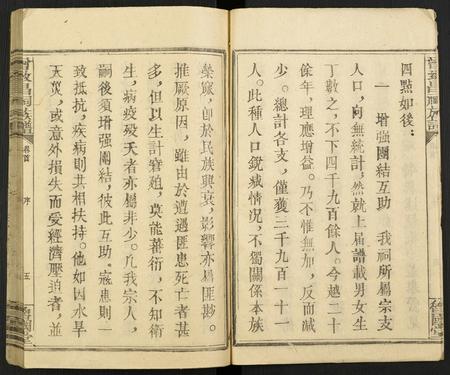 四點如後：
一 增強團結互助 我祠所屬宗支
人口，向無統計，然就上屆譜載男女生
丁數之，不下四千九百餘人。今越二十
餘年，理應增益。乃不惟無加，反而減
少。總計各支，僅獲二千九百一十一
人。此種人口銳減情況，不獨關係本族
榮窳，卽於民族興衰，影響亦屬匪尠。
推厥原因，雖由於遭遇匪患死亡者甚
多，但以生計窘廹，莫能蕃衍，不知衛
生，病疫殁夭者亦屬非少。凡我宗人，
嗣後須增強團結，彼此互助。寇患則一
致抵抗，疾病則共相扶持。他如因水旱
天災，或意外損失而受經濟壓廹者，並
卷首 序 五